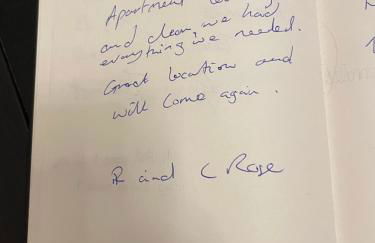 Apartment
and clean we had
everything we needed.
Great location and
will come again.
R and C Rose